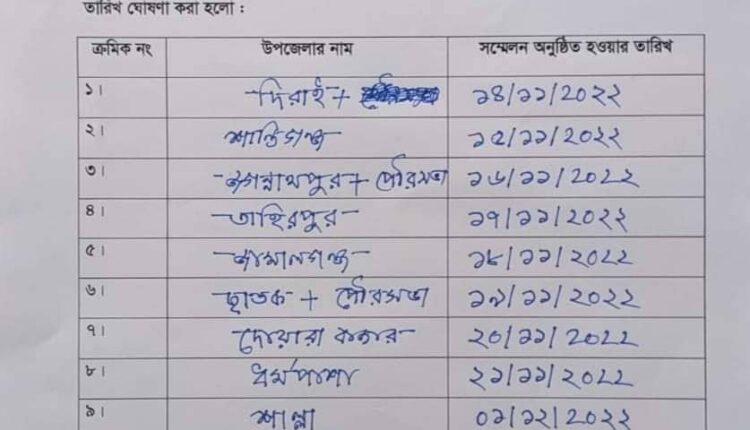 তারিখ ঘোষণা করা হলো :
ক্রমিক নং উপজেলার নাম সম্মেলন অনুষ্ঠিত হওয়ার তারিখ
১। দিরাই + ১৪/১১/২০২২
২। শান্তিগঞ্জ ১৫/১১/২০২২
৩। জগন্নাথপুর + পৌরসভা ১৬/১১/২০২২
৪। তাহিরপুর ১৭/১১/২০২২
৫। জামালগঞ্জ ১৮/১১/২০২২
৬। ছাতক + পৌরসভা ১৯/১১/২০২২
৭। দোয়ারা বাজার ২০/১১/২০২২
৮। ধর্মপাশা ২১/১১/২০২২
৯। শাল্লা ০১/১২/২০২২